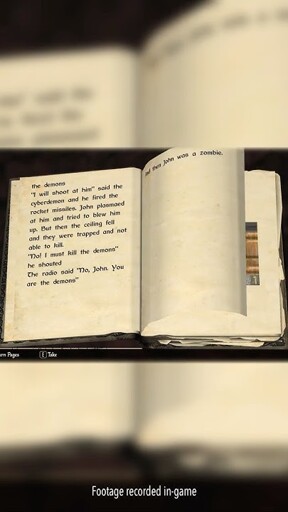 the demons
"I will shoot at him" said the
cyberdemon and he fired the
rocket missiles. John plasmaed
at him and tried to blew him
up. But then the ceiling fell
and they were trapped and not
able to kill.
"No! I must kill the demons"
he shouted
The radio said "No, John. You
are the demons"
And then John was a zombie.
Pages
E Take
Footage recorded in-game